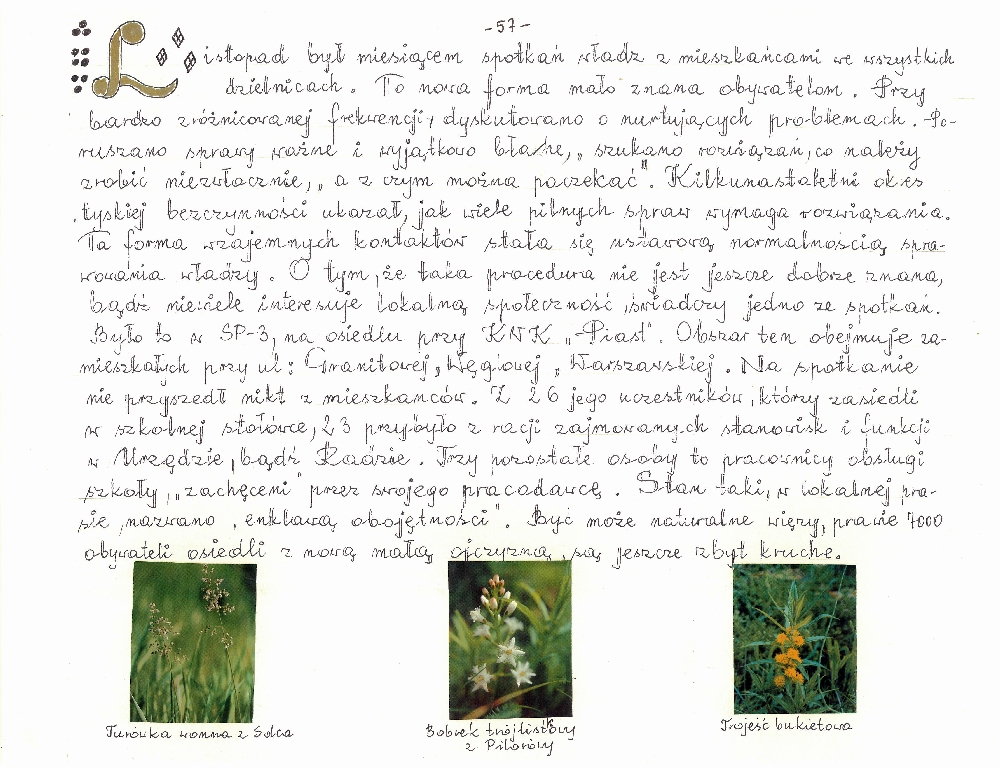 -57-
Listopad był miesiącem spotkań władz z mieszkańcami we wszystkich
dzielnicach. To nowa forma mało znana obywatelom. Przy
bardzo zróżnicowanej frekwencji, dyskutowano o nurtujących problemach. Po-
ruszano sprawy ważne i wyjątkowo błahe, „szukano rozwiązań, co należy
zrobić niezwłocznie, „a z czym można poczekać". Kilkunastoletni okres
tyskiej bezczynności ukazał, jak wiele pilnych spraw wymaga rozwiązania.
Ta forma wzajemnych kontaktów stała się ustawową normalnością spra-
wowania władzy. O tym, że taka procedura nie jest jeszcze dobrze znana,
bądź niewiele interesuje lokalną społeczność, świadczy jedno ze spotkań.
Było to w SP-3, na osiedlu przy KWK „Piast". Obszar ten obejmuje za-
mieszkałych przy ul: Granitowej, Węglowej, Warszawskiej. Na spotkanie
nie przyszedł nikt z mieszkańców. Z 26 jego uczestników, którzy zasiedli
w szkolnej stołówce, 23 przybyło z racji zajmowanych stanowisk i funkcji
w Urzędzie, bądź Radzie. Trzy pozostałe osoby to pracownicy obsługi
szkoły, „zachęceni" przez swojego pracodawcę. Stan taki, w lokalnej pra-
sie, nazwano „enklawą obojętności". Być może naturalne więzy, prawie 7000
obywateli osiedli z nową małą ojczyzną, są jeszcze zbyt kruche.
Turówka wonna z Solca
Bobrek trójlistkowy
z Pilorówy
Trojeść bukietowa